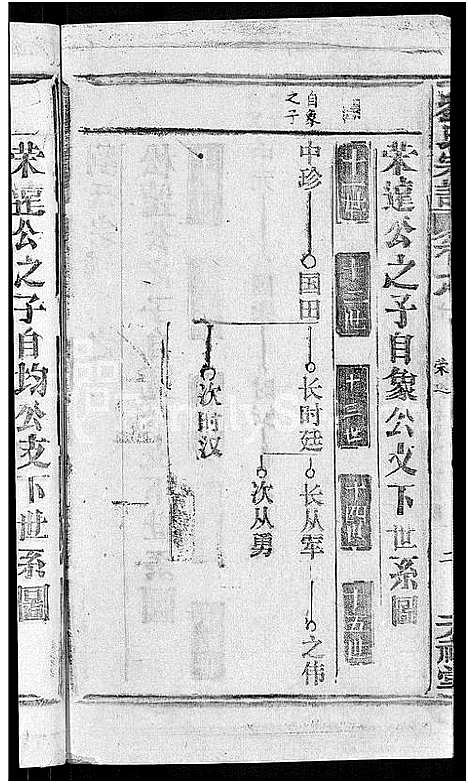 荣達公之子自象公支下世系圖
十一世
十二世
十三世
十四世
十五世
自象
之子
中珍
国田
长时廷
长从军
之伟
次从勇
次时汉
荣達公之子自均公支下世系圖